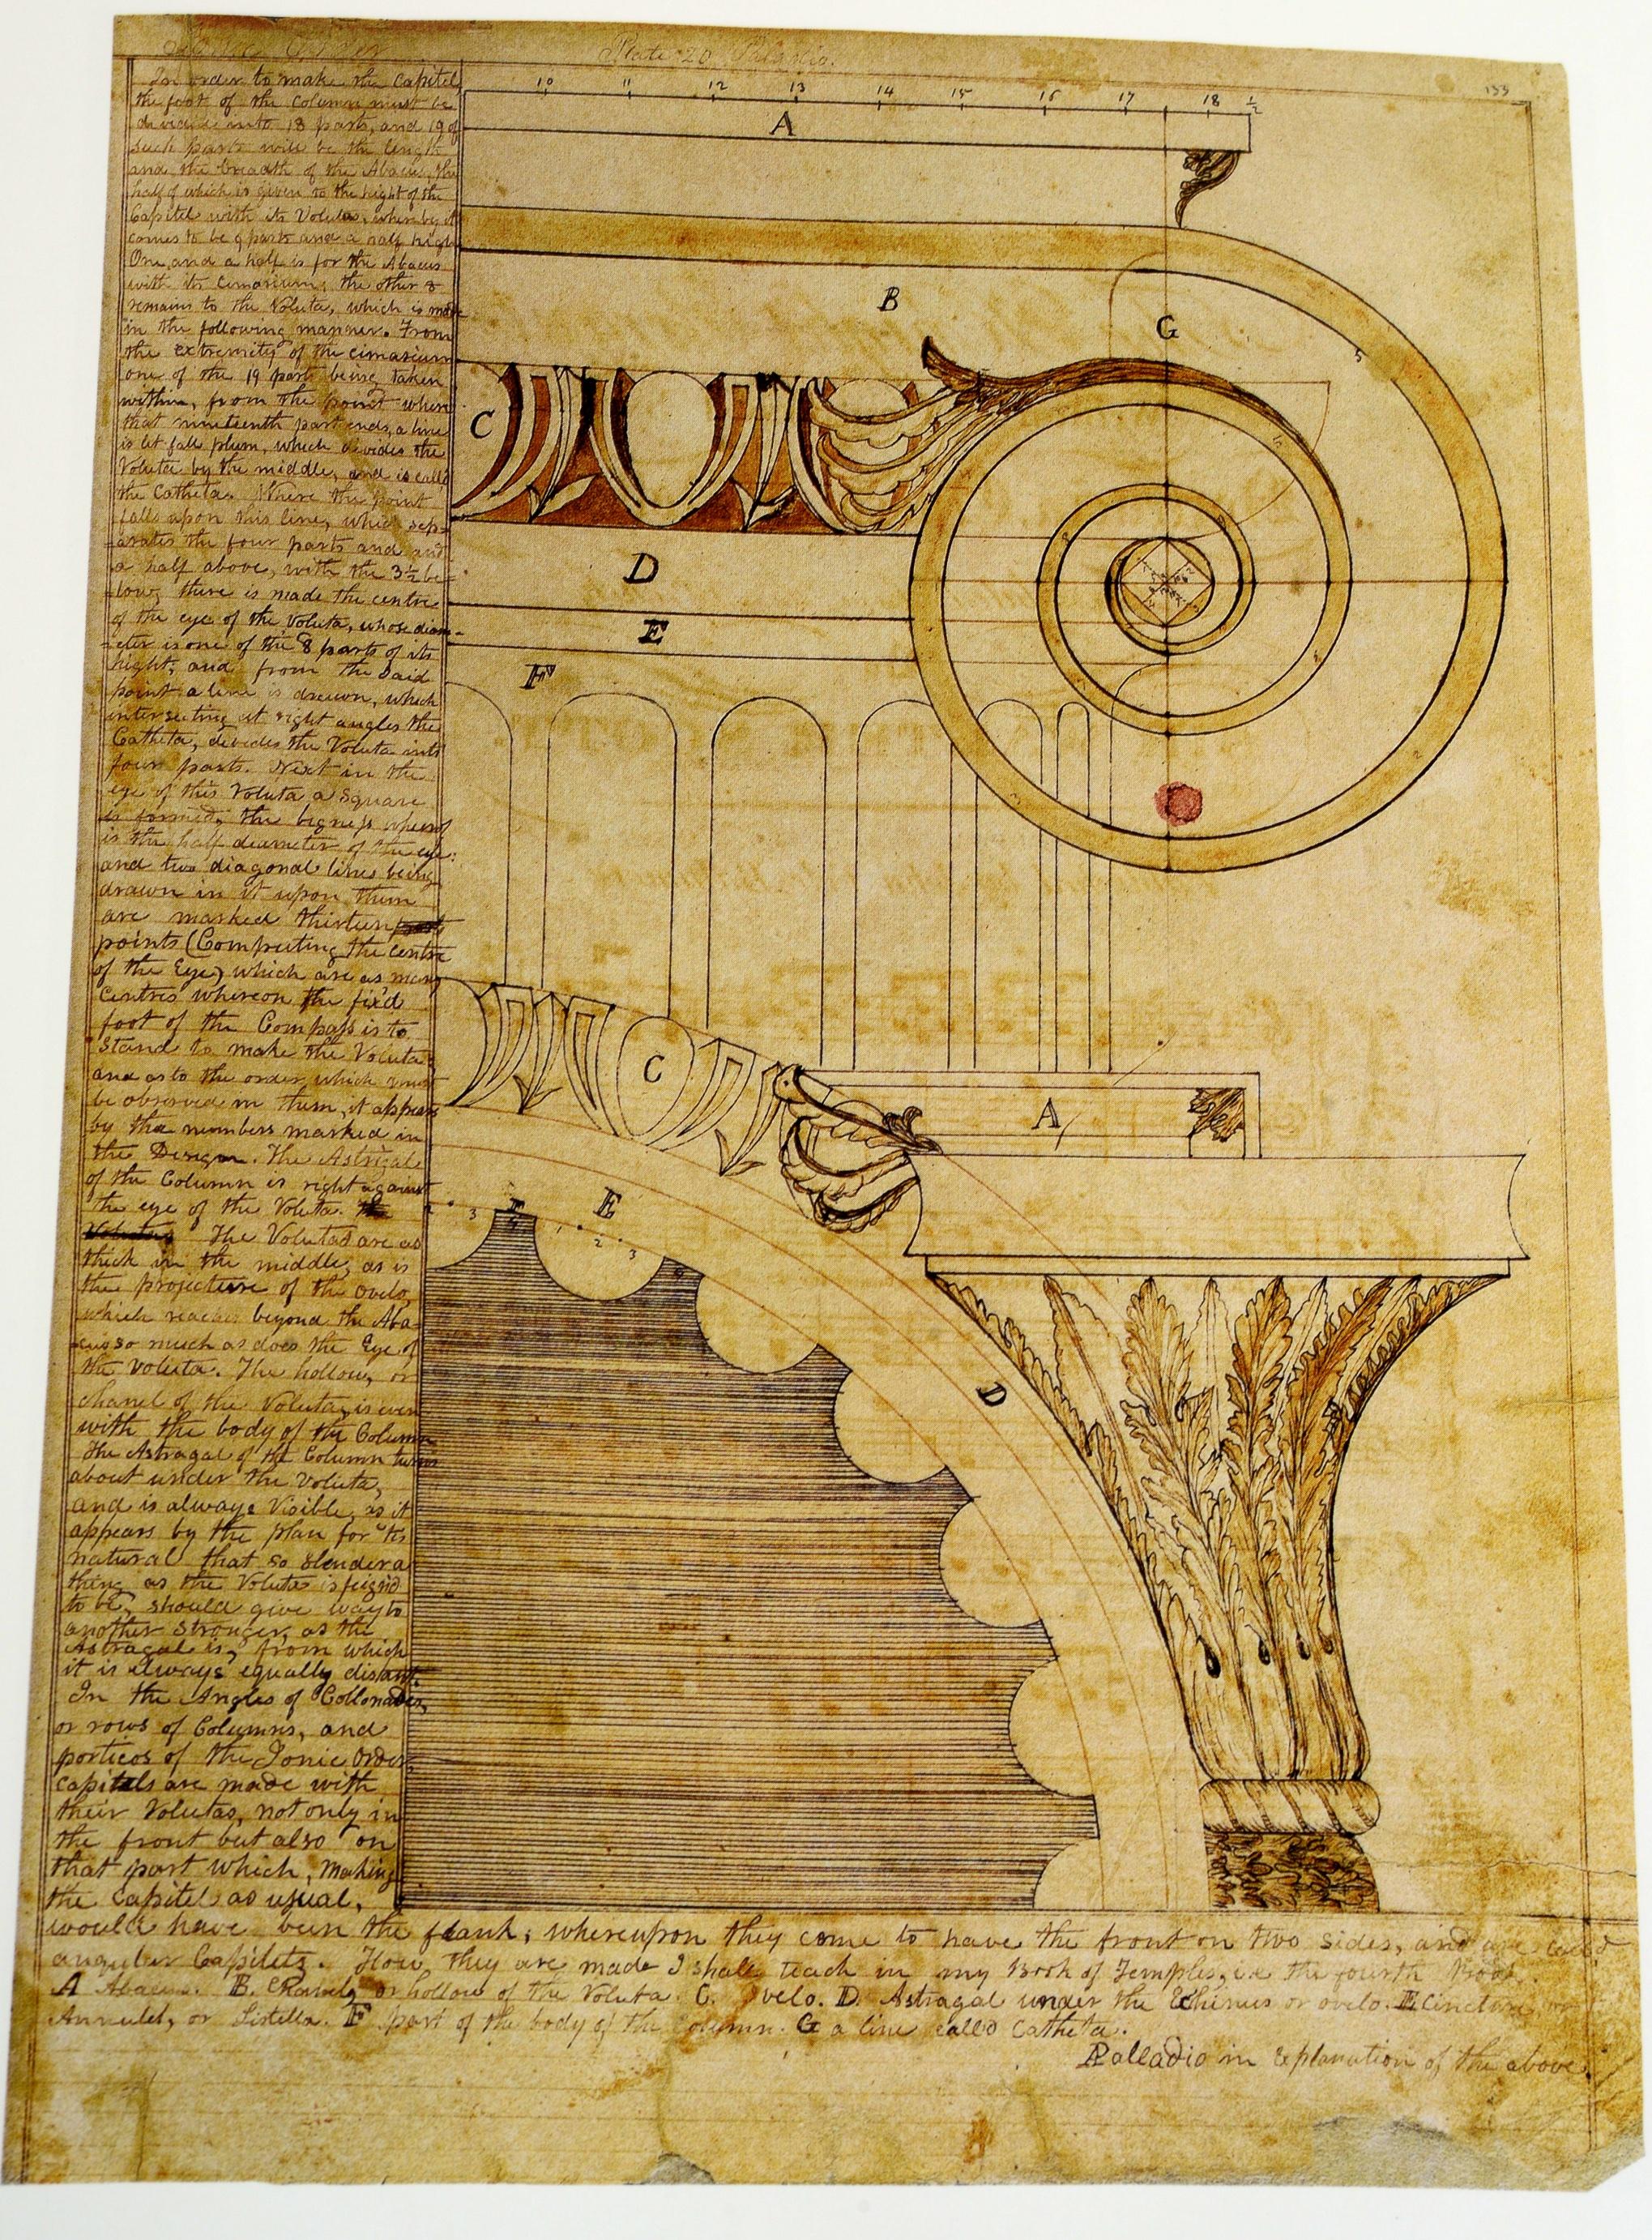 Ionic Order
Plate 20 Palladio.
133
In order to make the Capitel
the foot of the Column must be
divided into 18 parts, and 19 of
such parts will be the length
and the breadth of the Abacus, the
half of which is given to the hight of the
Capitel with its Volutas, whereby it
comes to be 9 parts and a half high
One and a half is for the Abacus
with its Cimasium; the other 8
remains to the Voluta, which is made
in the following manner. From
the extremity of the cimasium
one of the 19 parts being taken
within, from the point where
that nineteenth part ends, a line
is let fall plum, which divides the
Voluta by the middle, and is call'd
the Catheta. Where the point
falls upon this line, which sep-
-arates the four parts and and
a half above, with the 3½ be-
-low, there is made the centre
of the eye of the Voluta, whose diam-
-eter is one of the 8 parts of its
hight; and from the said
point a line is drawn, which
intersecting at right angles the
Catheta, divides the Voluta into
four parts. Next in the
eye of this Voluta a Square
is formed, the bigness whereof
is the half diameter of the eye:
and two diagonal lines being
drawn in it upon them
are marked thirteen parts
points (Computing the centre
of the Eye) which are as many
Centres whereon the fix'd
foot of the Compass is to
stand to make the Voluta
and as to the order, which must
be observed in them, it appears
by the numbers marked in
the Design. The Astrigal
of the Column is right against
the eye of the Voluta. The
Volutas The Volutas are as
thick in the middle, as is
the projecture of the ovelo,
which reaches beyond the Aba-
-cus so much as does the Eye of
the Voluta. The hollow, or
chanel of the Voluta, is even
with the body of the Column
The Astragal of the Column turns
about under the Voluta,
and is always Visible, as it
appears by the plan for 'tis
natural that so slender a
thing as the Voluta is feign'd
to be, should give way to
another Stronger, as the
Astragal is, from which
it is always equally distant.
In the Angles of Collonades,
or rows of Columns, and
porticos of the Ionic Order
capitels are made with
their Volutas, not only in
the front but also on
that part which, making
the Capitel as usual,
would have been the flank; whereupon they come to have the front on two sides, and are called
angular Capitels. How they are made I shall teach in my Book of Temples, i.e. the fourth Book.
A Abacus. B. Chanel, or hollow of the Voluta. C. Ovelo. D. Astragal under the Echinus or ovelo. E Cincture, or
Annulet, or Listella. F part of the body of the Column. G a line call'd Catheta.
Palladio in Explanation of the above.
10 11 12 13 14 15 16 17 18 ½
A
B
G
C
D
E
F
C
A
E
D